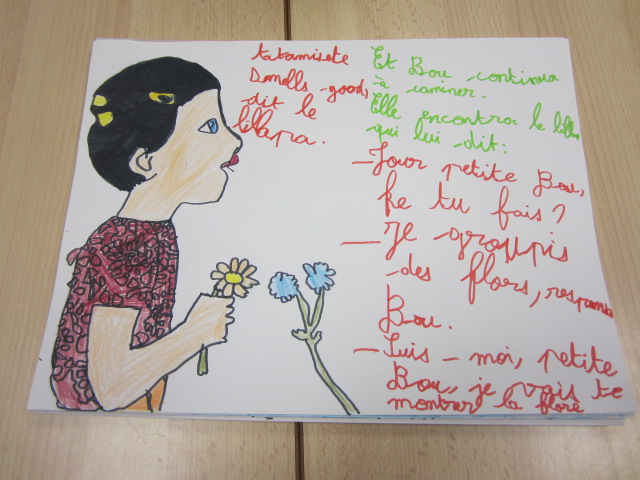 tatamisete
Smells good,
dit le
lillapra.
Et Bou continua
à caminer.
Elle encontra le
qui lui dit:
– Jour petite Bou,
ke tu fais?
– Je groupis
des flors, respons
Bou.
– Suis-moi, petite
Bou, je vais te
montrar la flore